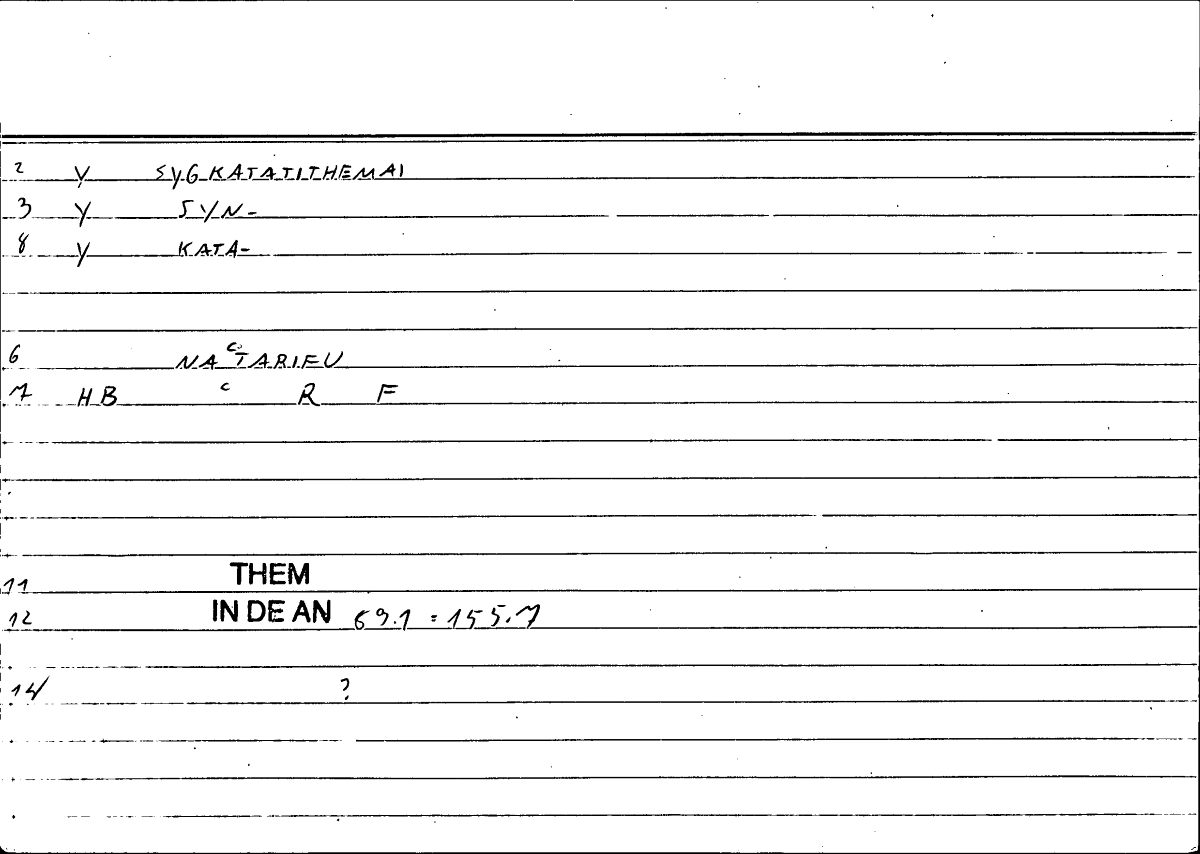 2 Y SYGKATATITHEMAI
3 Y SYN-
8 Y KATA-
6 NAᶜTARIFU
7 HB c R F
11 THEM
12 IN DE AN 69.1 = 155.7
14 ?